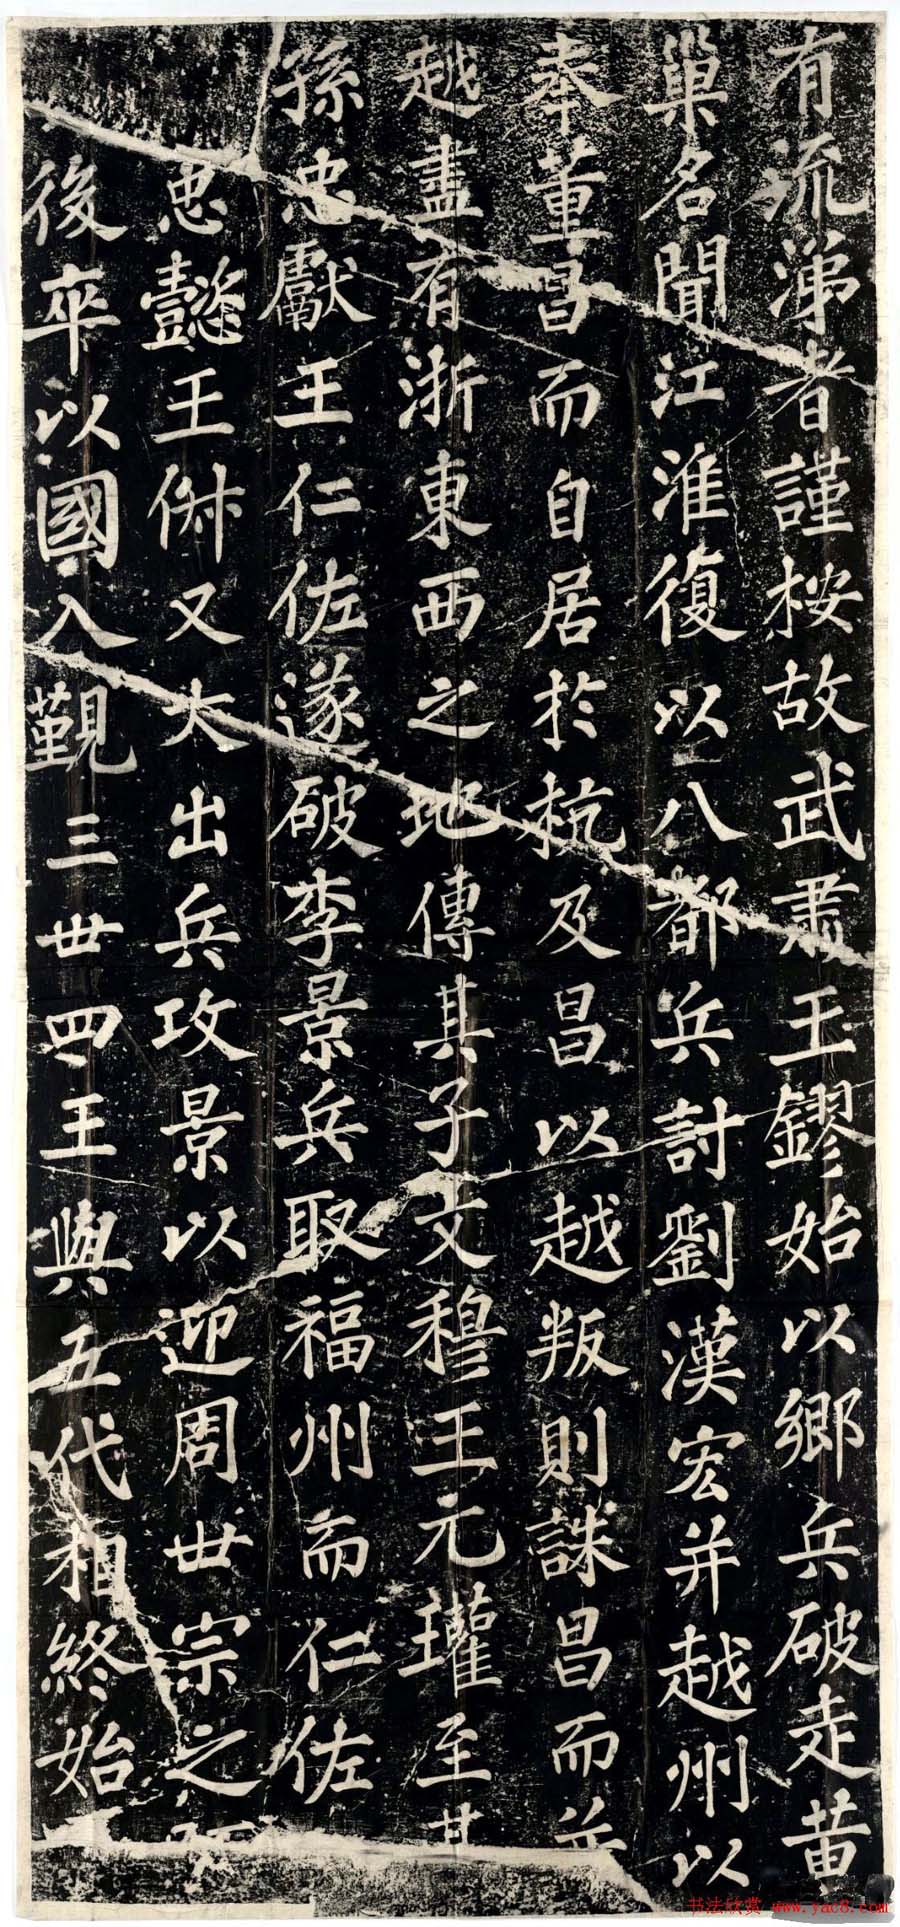 有流涕者謹按故武肅王鏐始以鄉兵破走黃
巢名聞江淮復以八都兵討劉漢宏并越州以
奉董昌而自居於杭及昌以越叛則誅昌而并
越盡有浙東西之地傳其子文穆王元瓘至其
孫忠獻王仁佐遂破李景兵取福州而仁佐
忠懿王俶又大出兵攻景以迎周世宗之
後卒以國入覲三世四王與五代相終始
书法欣赏 www.yac8.com